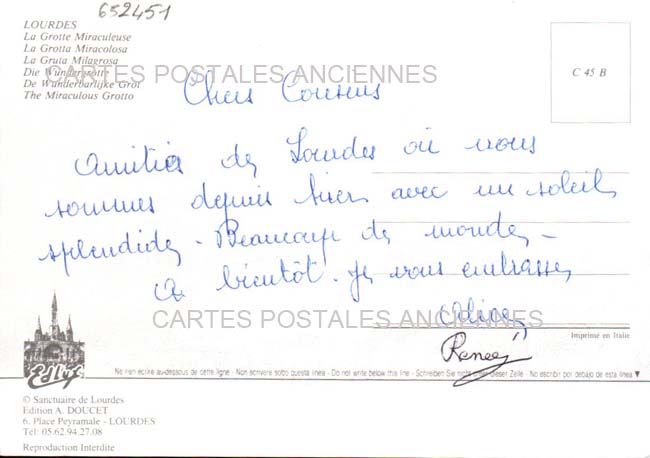 652451
LOURDES
La Grotte Miraculeuse
La Grotta Miracolosa
La Gruta Milagrosa
Die Wundergrotte
De Wunderbarlijke Grot
The Miraculous Grotto
C 45 B
CARTES POSTALES ANCIENNES
Chers Cousins
Amitiés de Lourdes où nous
sommes depuis hier avec un soleil
splendide - Beaucoup de monde -
A bientôt. Je vous embrasse
Aline
CARTES POSTALES ANCIENNES
Renée
Imprimé en Italie
Ne rien écrire au-dessous de cette ligne - Non scrivere sotto questa linea - Do not write below this line - Schreiben Sie nicht unter dieser Zeile - No escribir por debajo de esta linea ▼
© Sanctuaire de Lourdes
Edition A. DOUCET
6, Place Peyramale - LOURDES
Tél: 05.62.94.27.08
Reproduction Interdite